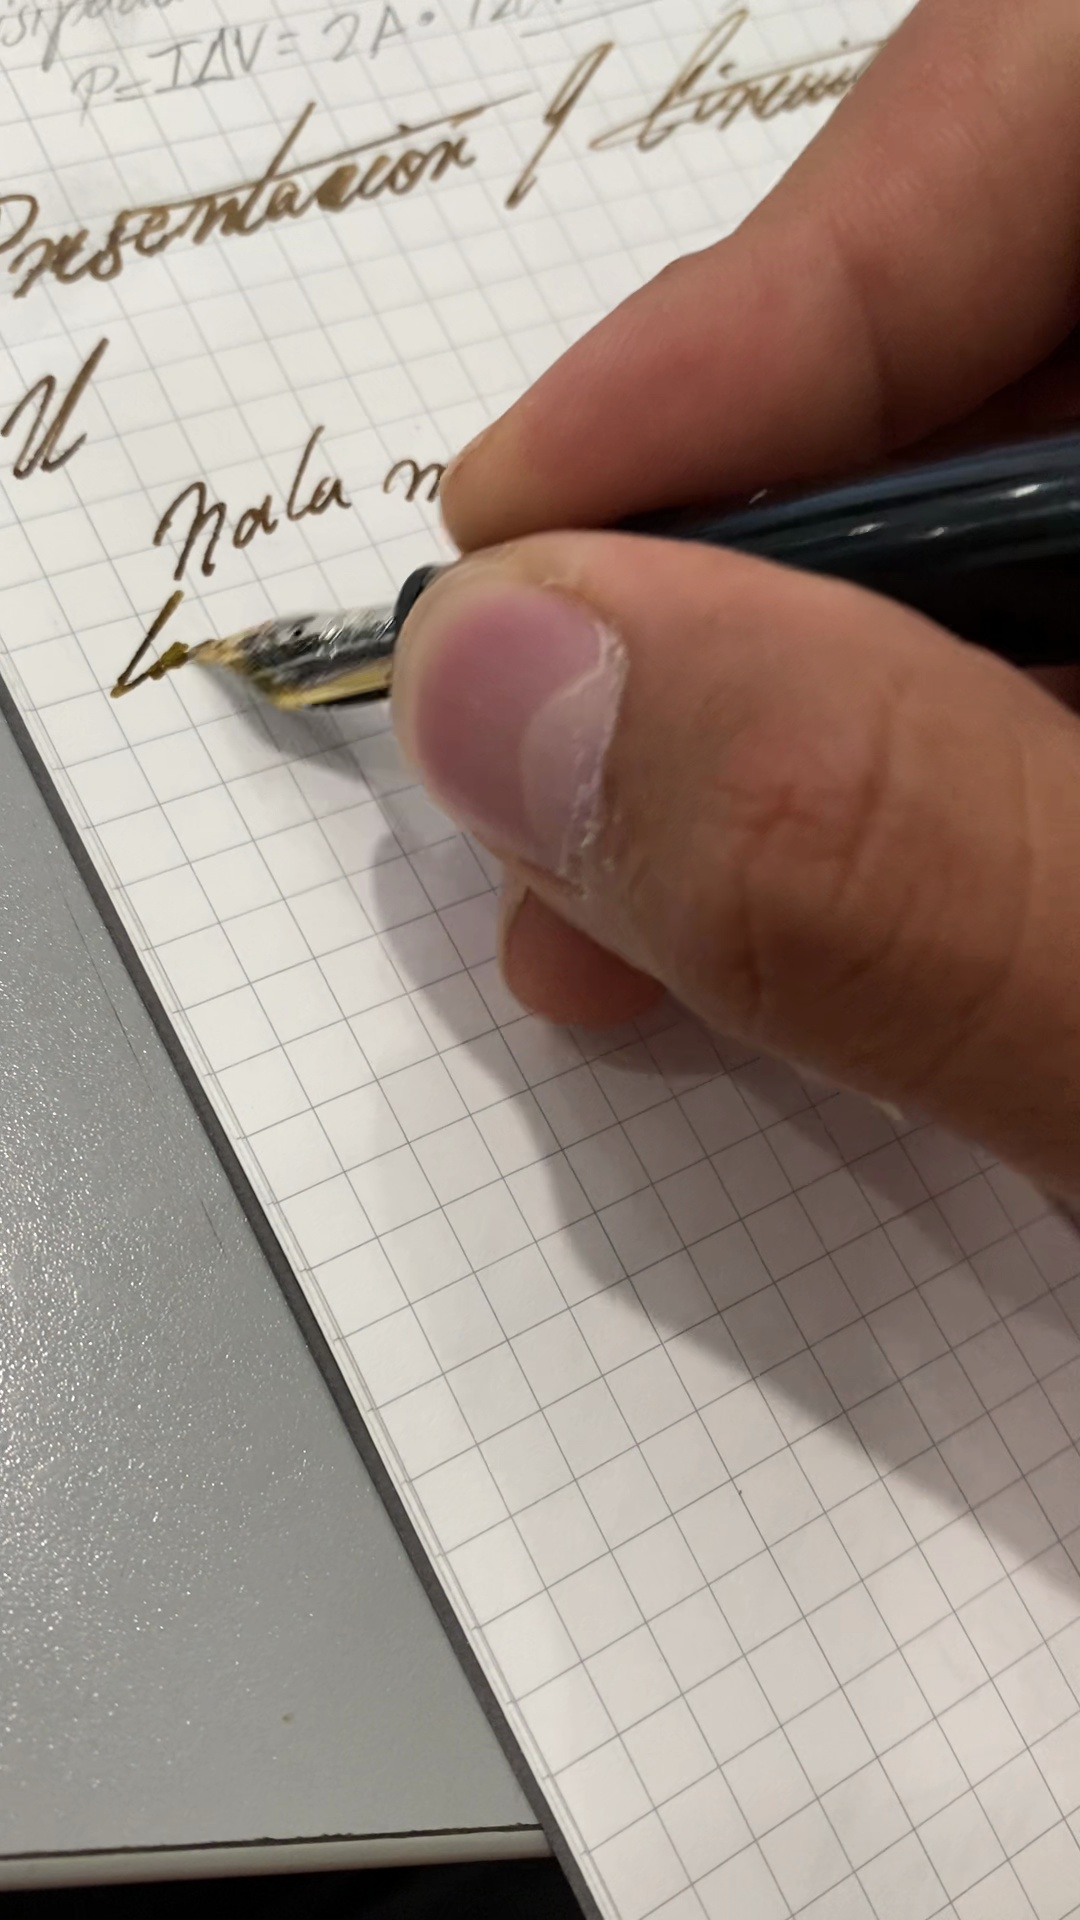 P=IΔV= 2A • 120
Presentación y Circuit
U
Nala m
L